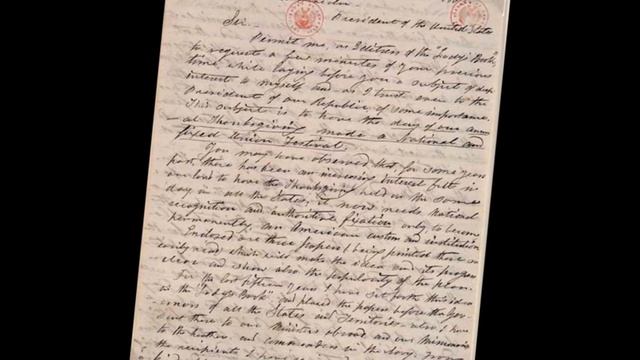 President of the United States
Sir.—
Permit me, as Editress of the "Lady's Book",
to request a few minutes of your precious
time, while laying before you a subject of deep
interest to myself and as I trust even to the
President of our Republic, of some importance.
This subject is to have the day of our annu-
al Thanksgiving made a National and
fixed Union Festival.
You may have observed that, for some years
past, there has been an increasing interest felt in
our land to have the Thanksgiving held on the same
day, in all the States; it now needs National
recognition and authoritive fixation, only to become
permanently, an American custom and institution.
Enclosed are three papers (being printed these are
easily read) which will make the idea and its progress
clear and show also the popularity of the plan.
For the last fifteen years I have set forth this idea
in the "Lady's Book", and placed the papers before the Gov-
ernors of all the States and Territories—also I have
sent these to our Ministers abroad, and our Missionaries
to the heathen and commanders in the Navy. From
the recipients I have